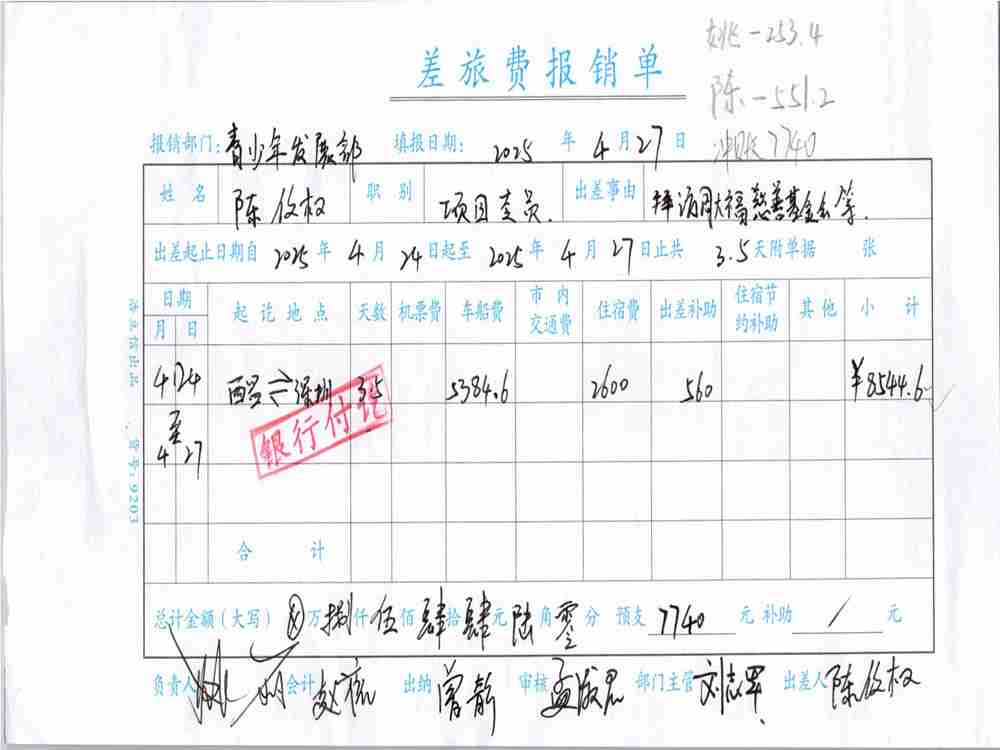 姚-253.4
差旅费报销单
陈-551.2
冲账7740
报销部门：青少年发展部 填报日期： 2025 年 4 月 27 日
姓名 陈俊权 职别 项目专员 出差事由 拜访腾讯慈善基金会等.
出差起止日期自 2025 年 4 月 24 日起至 2025 年 4 月 27 日止共 3.5 天附单据 张
日期 起讫地点 天数 机票费 车船费 市内交通费 住宿费 出差补助 住宿节约补助 其他 小计
月 日
4 24 西昌⇌深圳 3.5 5384.6 2600 560 ¥8544.6
至
4 27
银行付讫
合计
总计金额（大写） ⊗万捌仟伍佰肆拾肆元陆角零分 预支 7740 元 补助 / 元
负责人 会计 出纳 曾静 审核 部门主管 刘志军 出差人 陈俊权
浩立信出品 货号：9203